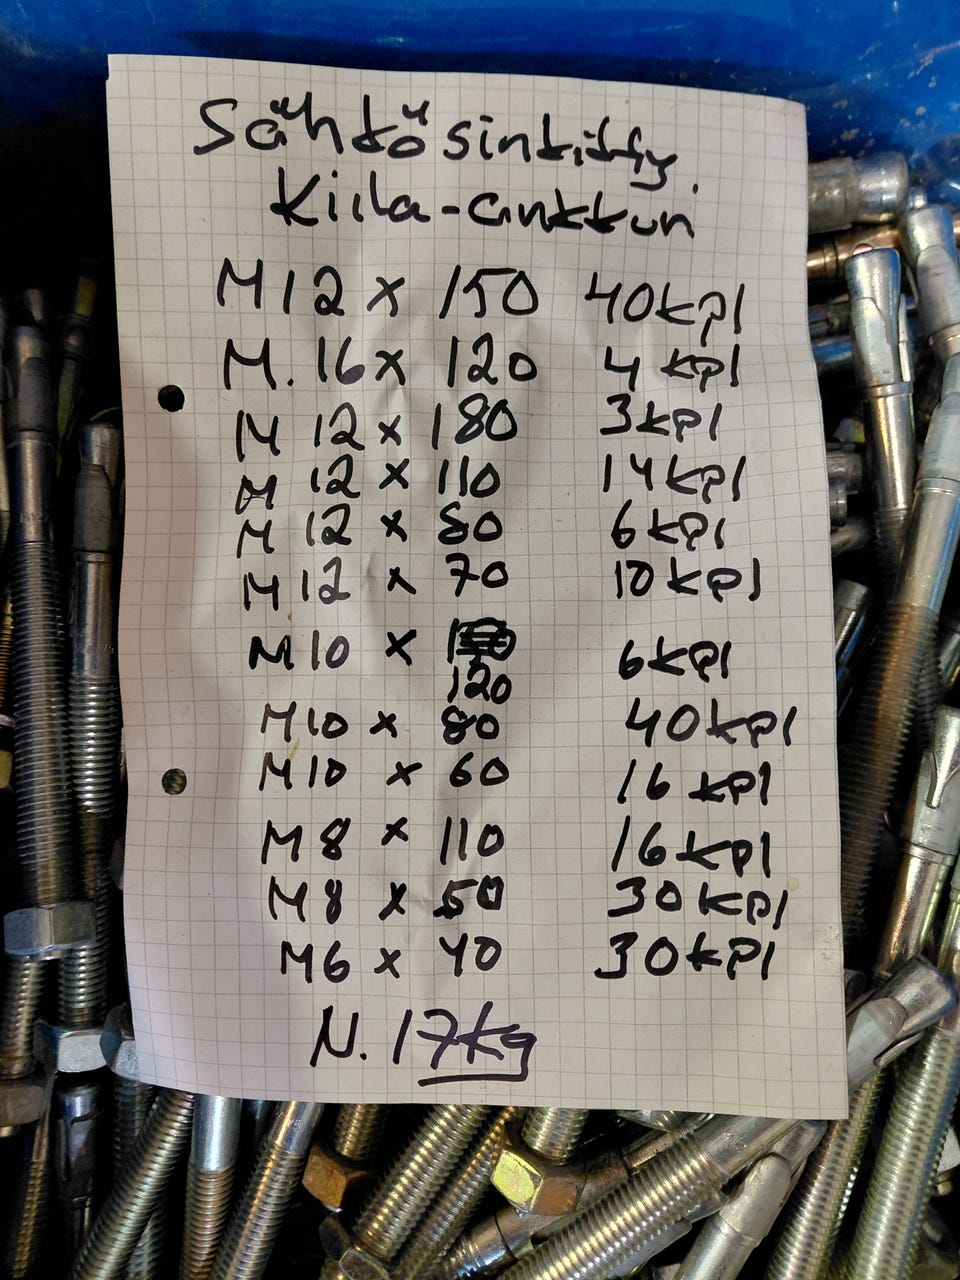 Sähkösinkitty.
Kiila-ankkuri
M12 x 150 40kpl
M.16x 120 4 kpl
M 12 x 180 3kpl
M 12 x 110 14kpl
M 12 x 80 6kpl
M 12 x 70 10kpl
M10 x 6kpl
120
M10 x 80 40kpl
M10 x 60 16 kpl
M8 x 110 16kpl
M8 x 50 30kpl
M6 x 40 30kpl
N. 17kg